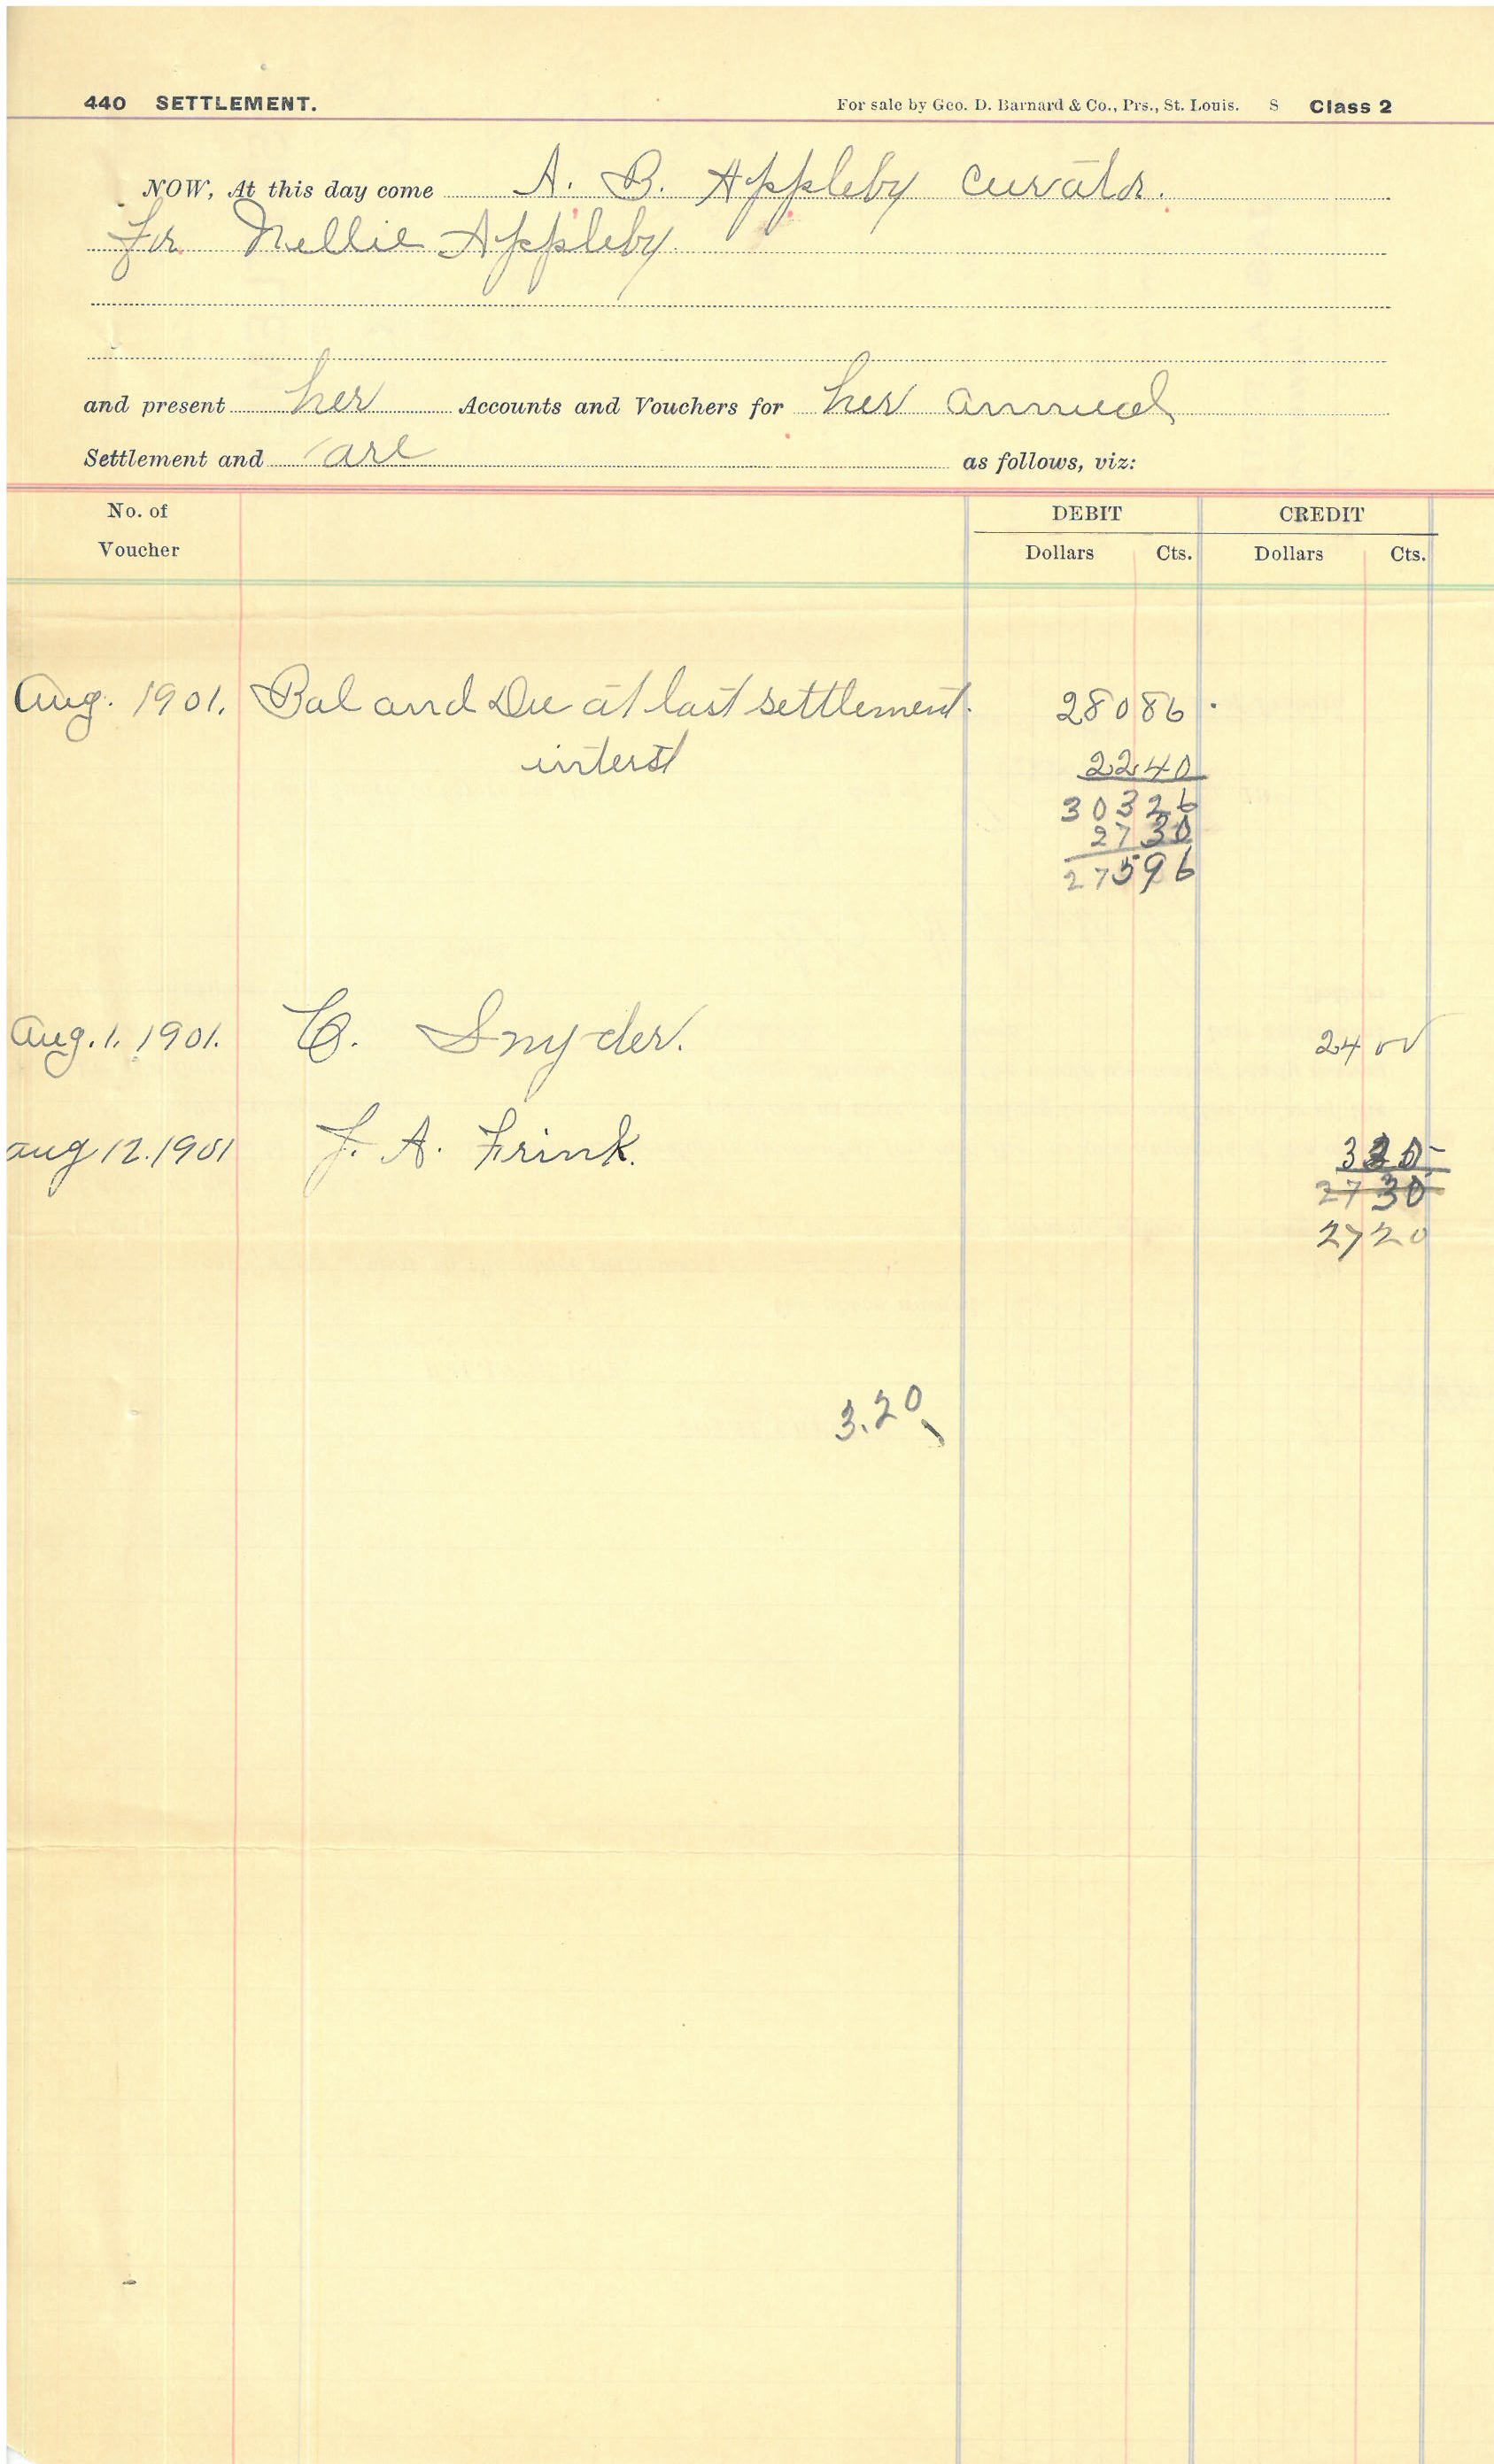 440 SETTLEMENT. For sale by Geo. D. Barnard & Co., Prs., St. Louis. S Class 2
NOW, At this day come A. B. Appleby curator.
for Nellie Appleby.
and present her Accounts and Vouchers for her annual
Settlement and are as follows, viz:
No. of Voucher DEBIT CREDIT
Dollars Cts. Dollars Cts.
Aug. 1901. Bal and Due at last settlement. 280 86
interst 22 40
303 26
27 30
275 96
Aug. 1. 1901. C. Snyder. 24 00
Aug 12. 1901 J. A. Frink. 3 20
27 30
27 20
3.20